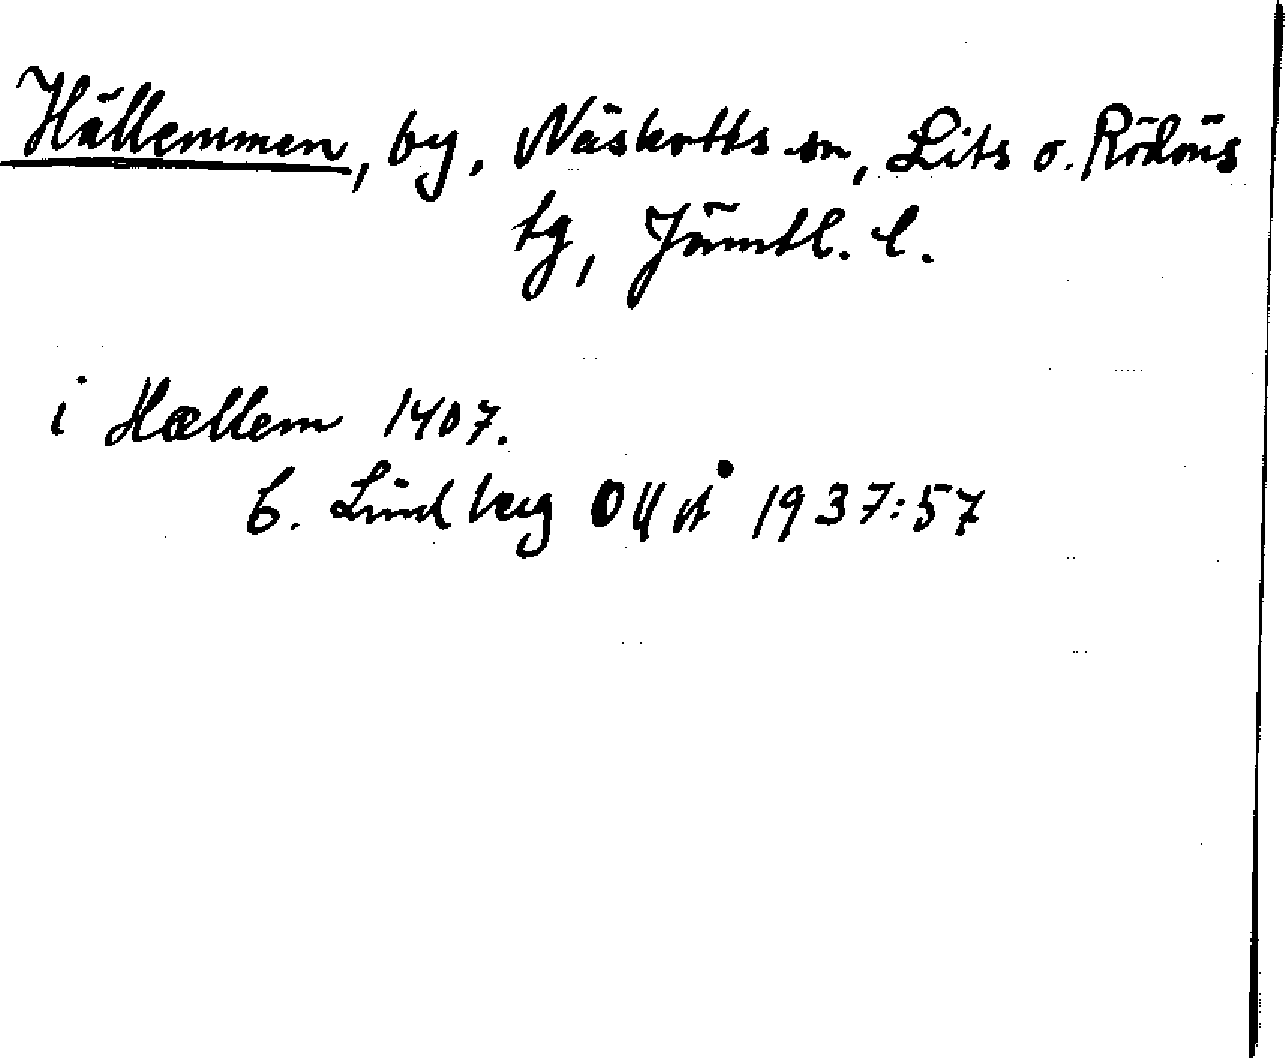 Hällemmen, by, Näskotts sn, Lits o. Rödöns
tg, Jämtl. l.
i Hællem 1407.
C. Lindberg 1937:57